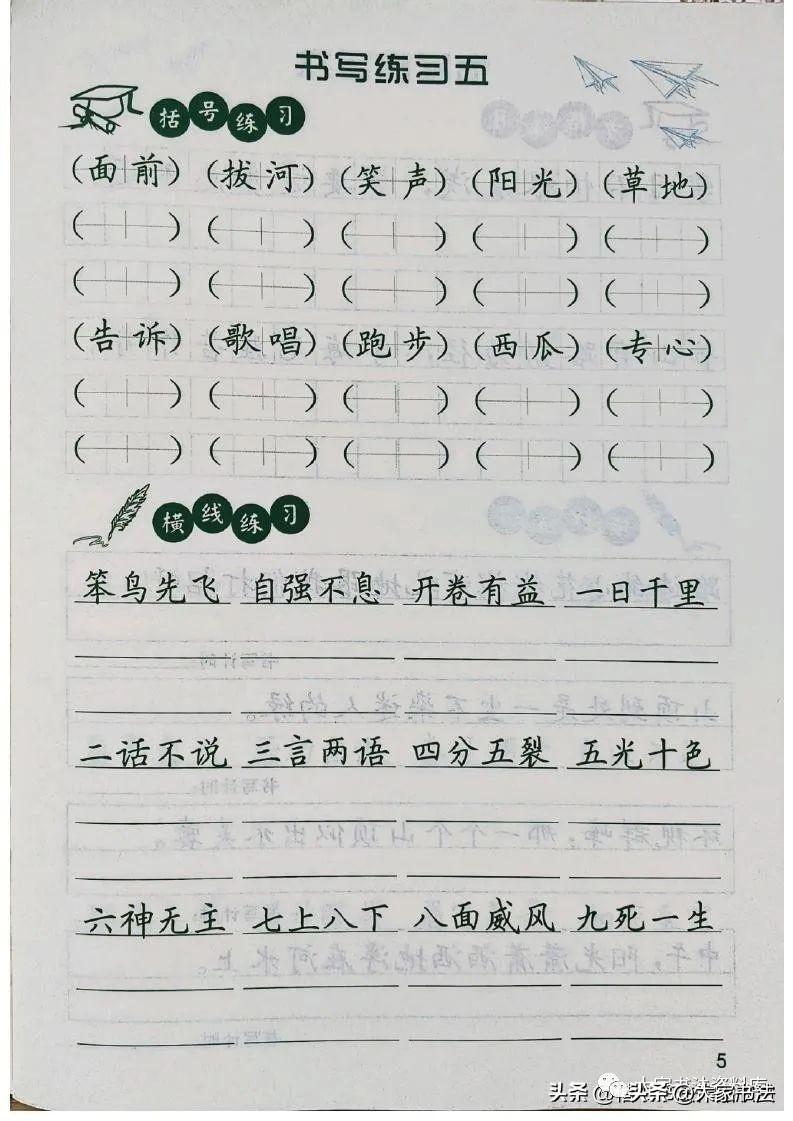 书写练习五
括号练习
(面前) (拔河) (笑声) (阳光) (草地)
( ) ( ) ( ) ( ) ( )
( ) ( ) ( ) ( ) ( )
(告诉) (歌唱) (跑步) (西瓜) (专心)
( ) ( ) ( ) ( ) ( )
( ) ( ) ( ) ( ) ( )
横线练习
笨鸟先飞 自强不息 开卷有益 一日千里
二话不说 三言两语 四分五裂 五光十色
六神无主 七上八下 八面威风 九死一生
5
头条
头条@大家书法